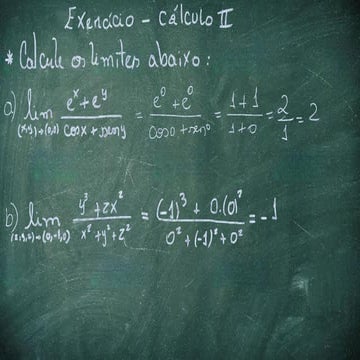 Exercício - Cálculo II
* Calcule os limites abaixo:
a) lim (x,y)→(0,0) (e^x + e^y)/(cosx + seny) = (e^0 + e^0)/(cos0 + sen0) = (1+1)/(1+0) = 2/1 = 2
b) lim (x,y,z)→(0,-1,0) (y^3 + zx^2)/(x^2 + y^2 + z^2) = ((-1)^3 + 0.(0)^2)/(0^2 + (-1)^2 + 0^2) = -1